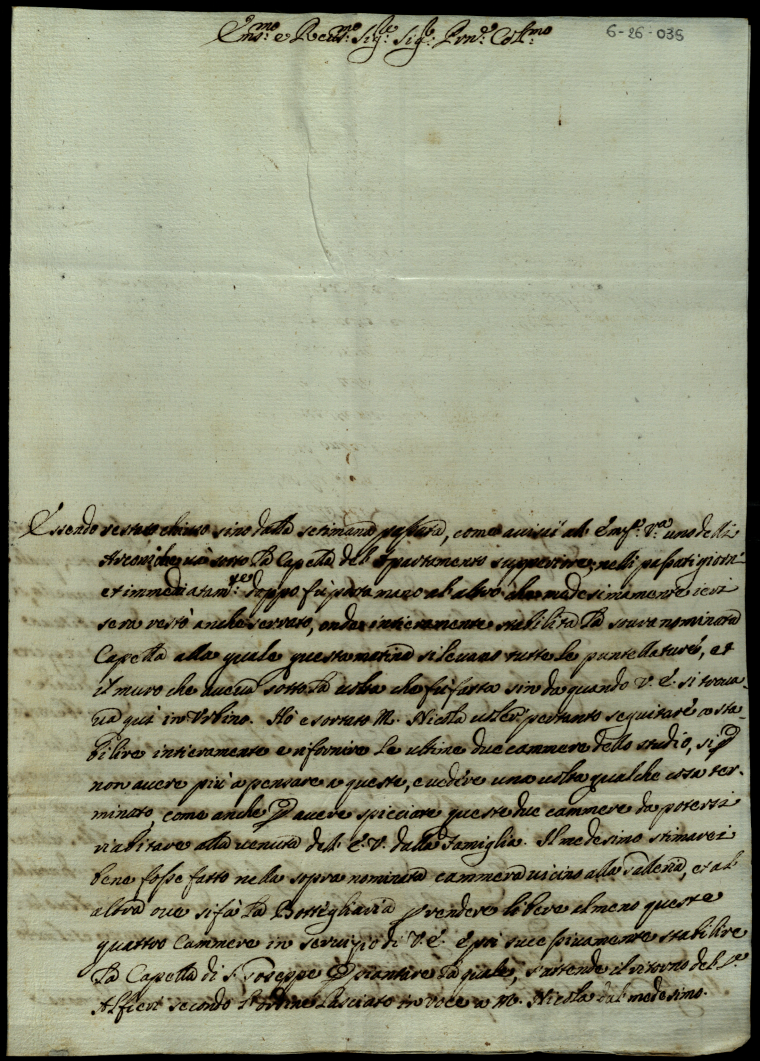 Em.mo e Reu.mo Sig.re Sig.r Pron.e Col.mo
6-26-035
Essendo restato chiuso sino dalla setimana passata, come auisai al Em.za V.ra uno delli
sotto la Capella del Apartamento superiore, nelli passati giorni
et immediatam.te doppo fù posta mano al altro che medesimamente ieri
sera restò anche serrato, onde intieramente stabilita la soura nominata
Capella alla quale questa matina si leuano tutte le puntellature, et
il muro che aueua sotto la uolta che fù fatta sin da quando V. E. si troua-
ua quì in Vrbino. Hò esortato M. Nicola uoler pertanto seguitare a sta-
bilire intieramente e rifornire le ultime due cammere dello studio, si p
non auere più a pensare a queste, e uedere una uolta qualche cosa ter-
minata, come anche p auere spicciate queste due cammere da potersi
riabitare alla uenuta del E. V. dalla Famiglia. Il medesimo stimarei
bene fosse fatto nella sopra nominata cammera uicino alla Galleria, et al
altra oue si fà la Bottigliaria p rendere libere almeno queste
quattro Cammere in seruizio di V. E. e poi successiuamente stabilire
la Capella di S. Gioseppe p la quale, s'attende il ritorno del S.r
Alfieri secondo l'ordine lasciato in uoce a M. Nicola dal medesimo.